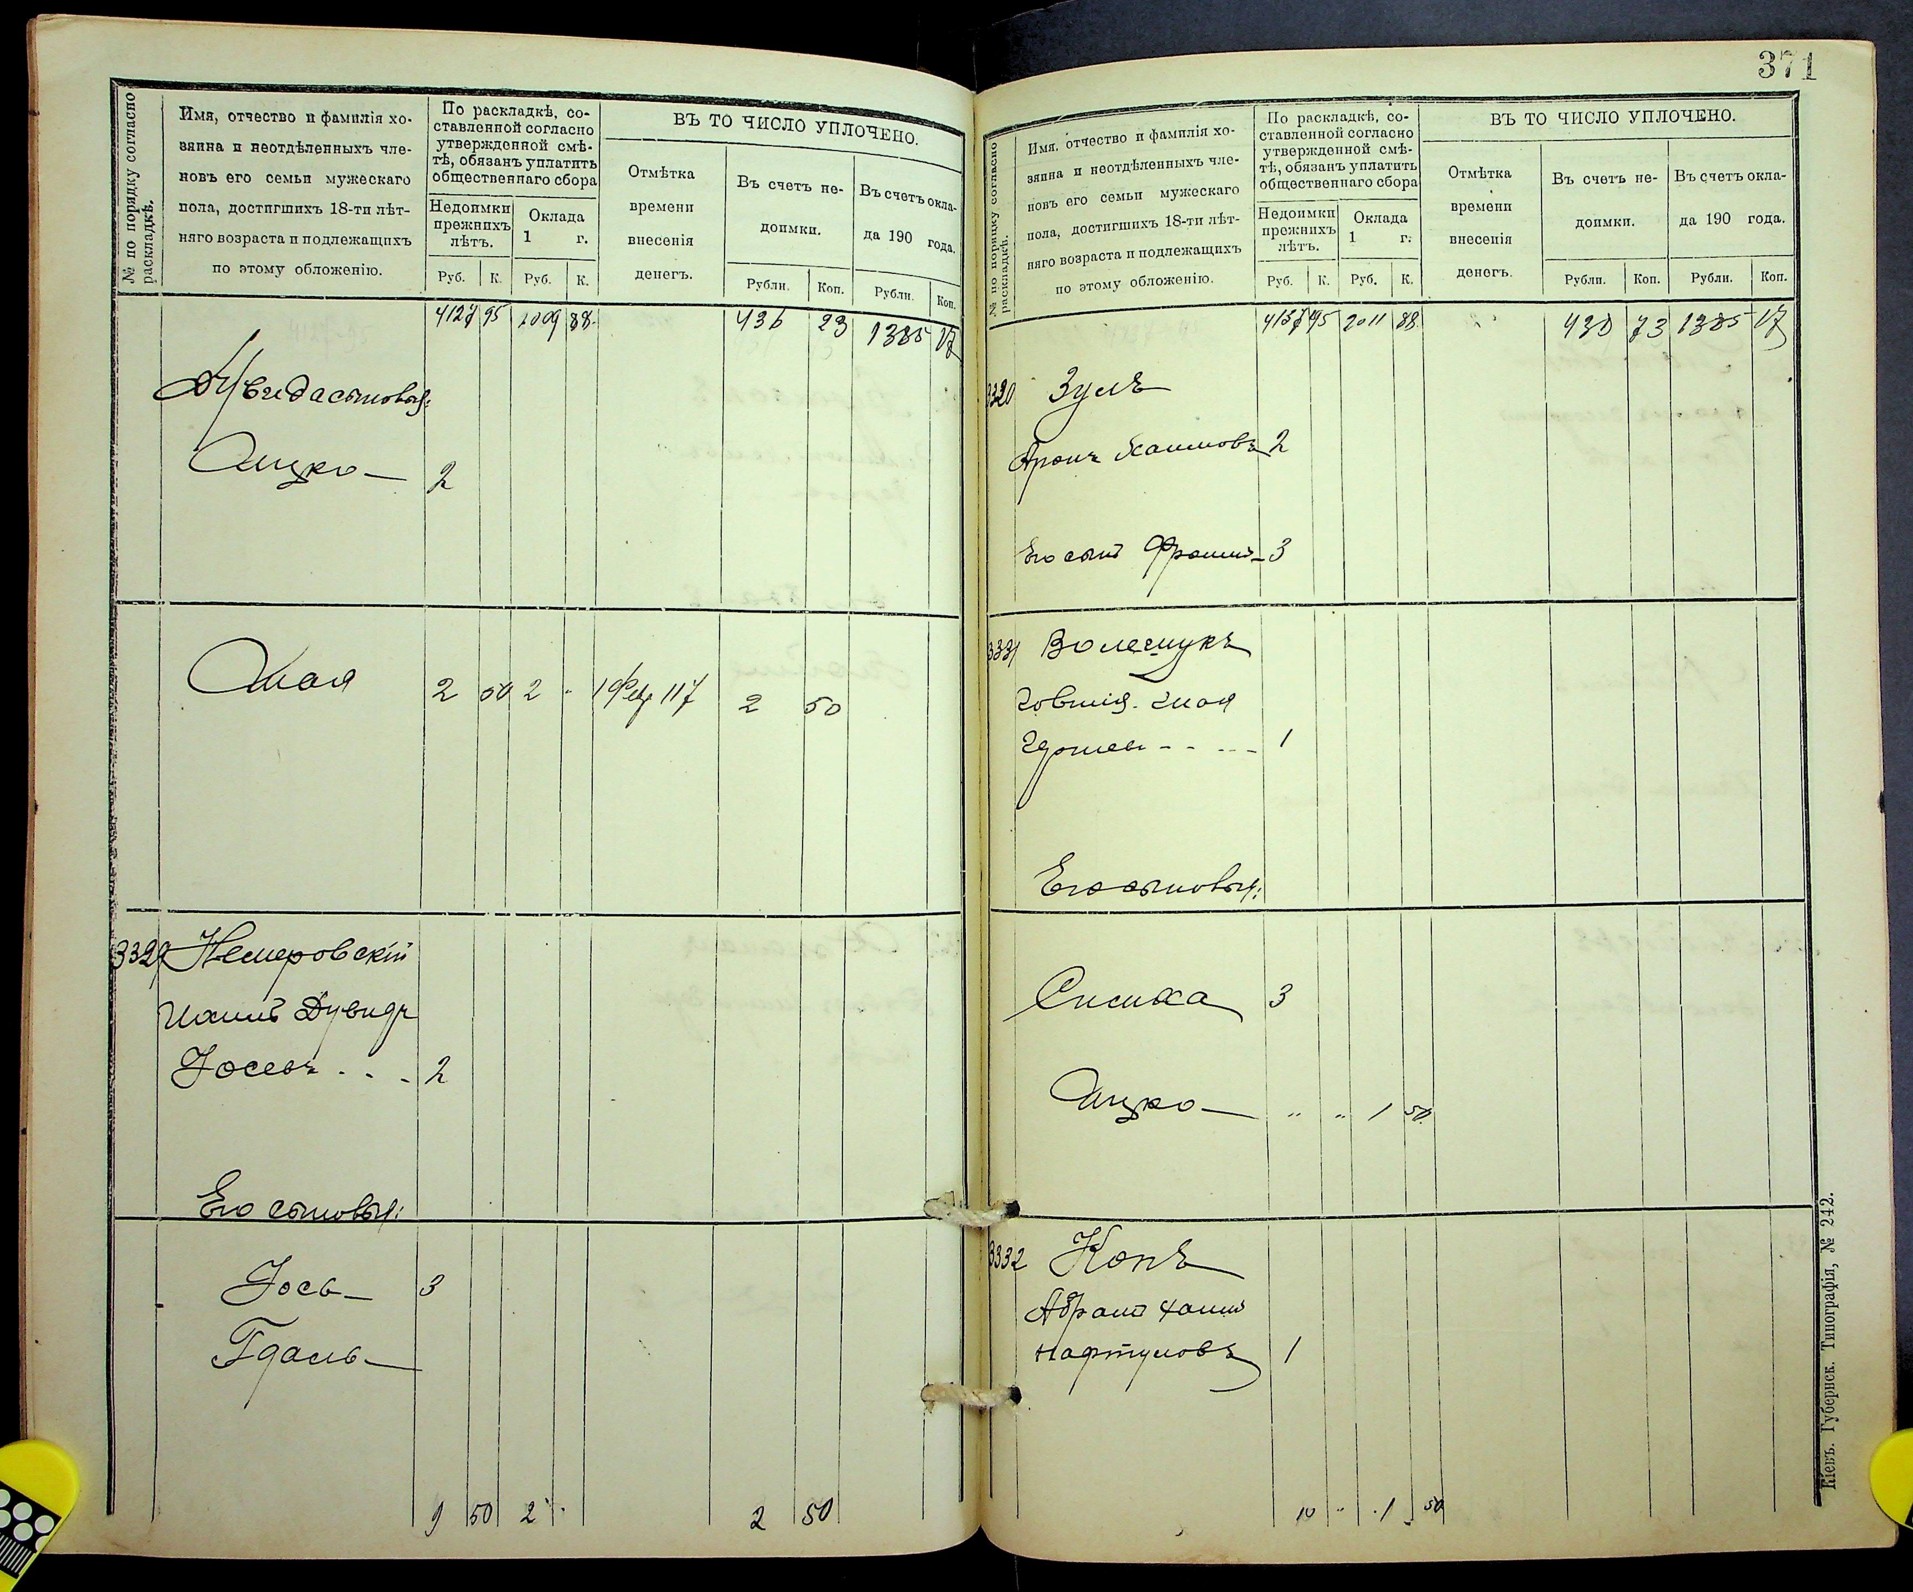 № по порядку согласно раскладкѣ.
Имя, отчество и фамилія хо-
зяина и неотдѣленныхъ чле-
новъ его семьи мужескаго
пола, достигшихъ 18-ти лѣт-
няго возраста и подлежащихъ
по этому обложенію.
По раскладкѣ, со-
ставленной согласно
утвержденной смѣ-
тѣ, обязанъ уплатить
общественнаго сбора
Недоимки
прежнихъ
лѣтъ.
Оклада
1 г.
Руб. К. Руб. К.
ВЪ ТО ЧИСЛО УПЛОЧЕНО.
Отмѣтка
времени
внесенія
денегъ.
Въ счетъ не-
доимки.
Рубли. Коп.
Въ счетъ окла-
да 190 года.
Рубли. Коп.
4127 95 2009 88 436 23 1385 17
сыновья:
Ицко 2
2 50 2 " 1 Фев 117 2 50
3329 Немеровскій
Дувидъ
Іосевъ 2
Его сыновья:
Іось 3
Гдаль
9 50 2 " 2 50
371
№ по порядку согласно раскладкѣ.
Имя, отчество и фамилія хо-
зяина и неотдѣленныхъ чле-
новъ его семьи мужескаго
пола, достигшихъ 18-ти лѣт-
няго возраста и подлежащихъ
по этому обложенію.
По раскладкѣ, со-
ставленной согласно
утвержденной смѣ-
тѣ, обязанъ уплатить
общественнаго сбора
Недоимки
прежнихъ
лѣтъ.
Оклада
1 г.
Руб. К. Руб. К.
ВЪ ТО ЧИСЛО УПЛОЧЕНО.
Отмѣтка
времени
внесенія
денегъ.
Въ счетъ не-
доимки.
Рубли. Коп.
Въ счетъ окла-
да 190 года.
Рубли. Коп.
4137 45 2011 88 438 73 1385 17
Зуль
Аронъ Хаимовъ 2
Его сынъ Фроимъ 3
3331
1
Его сыновья:
Симха 3
Ицко " " 1 50
3332 Копъ
Абрамъ Хаимъ
Нафтуловъ 1
10 " 1 50
Кіевъ. Губернск. Типографія, № 242.